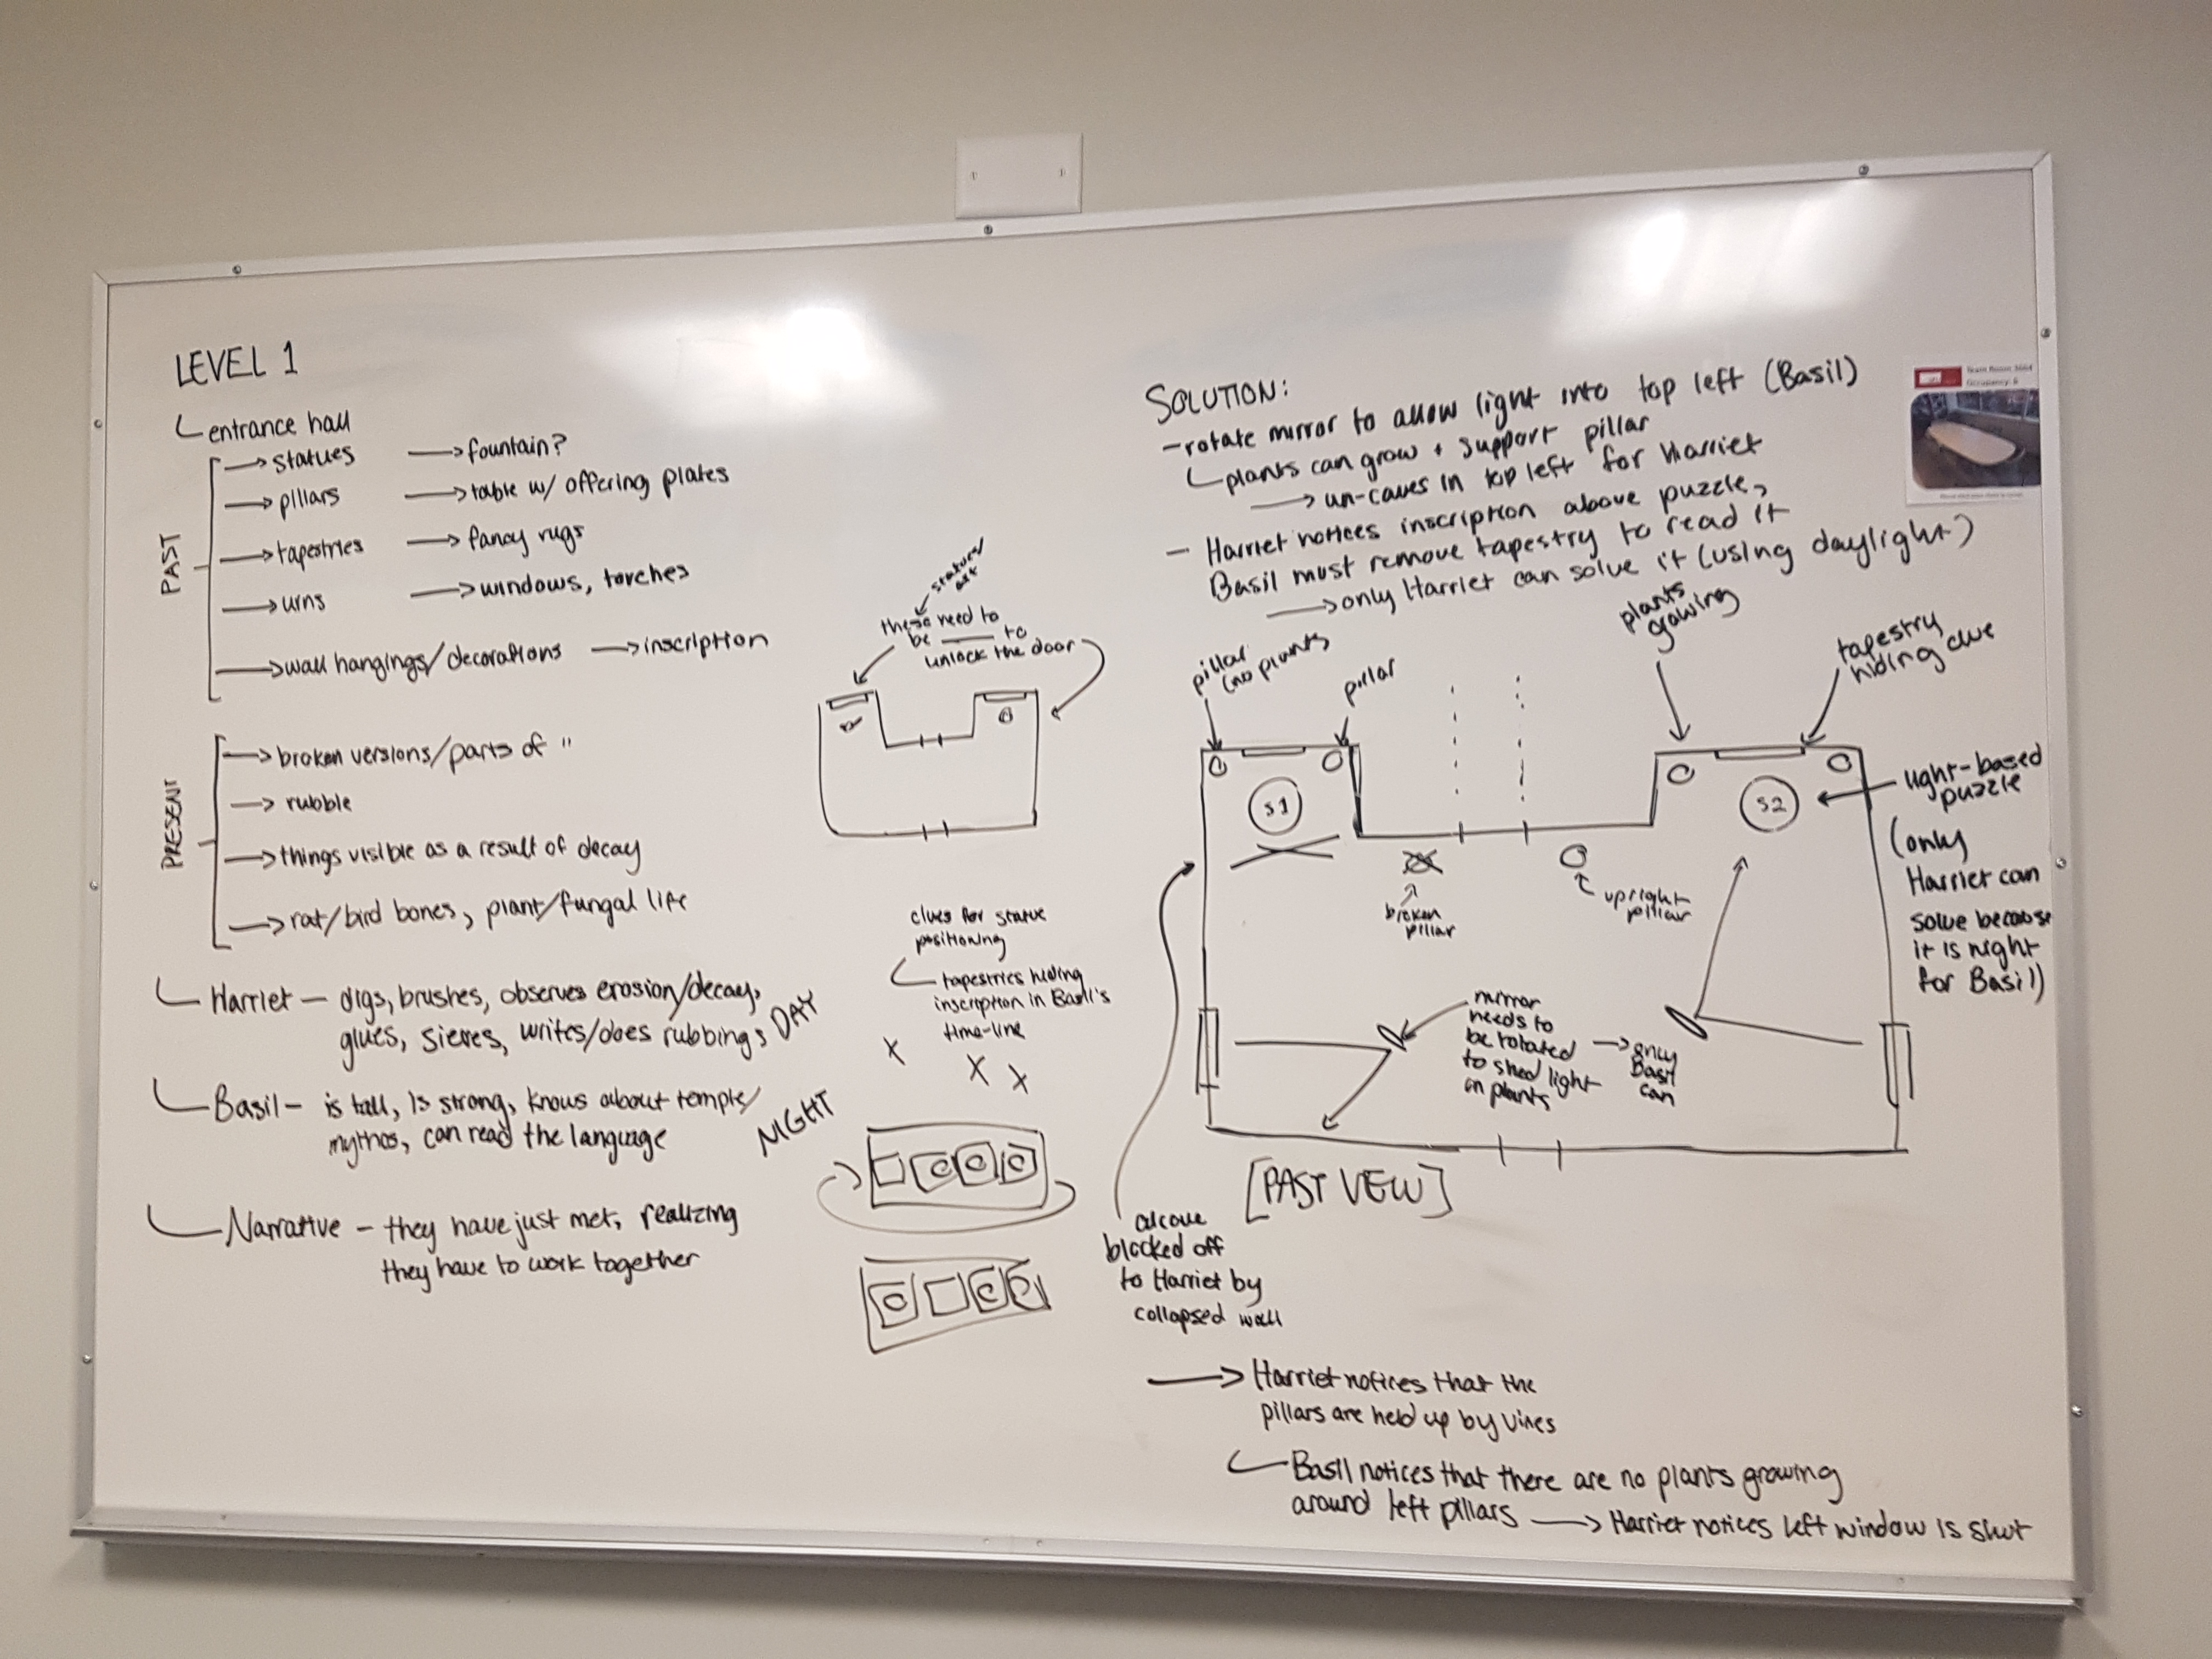 LEVEL 1
entrance hall
PAST
→ statues → fountain?
→ pillars → table w/ offering plates
→ tapestries → fancy rugs
→ urns → windows, torches
→ wall hangings/decorations → inscription
PRESENT
→ broken versions/parts of "
→ rubble
→ things visible as a result of decay
→ rat/bird bones, plant/fungal life
Harriet – digs, brushes, observes erosion/decay,
glues, sieves, writes/does rubbings DAY
Basil – is tall, is strong, knows about temple/
mythos, can read the language
NIGHT
Narrative – they have just met, realizing
they have to work together
statues/
these need to
be ___ to
unlock the door
clues for statue
positioning
tapestries hiding
inscription in Basil's
time-line
X X X
SOLUTION:
- rotate mirror to allow light into top left (Basil)
plants can grow + support pillar
→ un-caves in top left for Harriet
- Harriet notices inscription above puzzle,
Basil must remove tapestry to read it
→ only Harriet can solve it (using daylight)
pillar
(no plants)
pillar
plants
growing
tapestry
hiding clue
S1
S2
light-based
puzzle
(only
Harriet can
solve because
it is night
for Basil)
broken
pillar
upright
pillar
mirror
needs to
be rotated
to shed light
on plants
→ only
Basil
can
[PAST VIEW]
alcove
blocked off
to Harriet by
collapsed wall
→ Harriet notices that the
pillars are held up by vines
Basil notices that there are no plants growing
around left pillars → Harriet notices left window is shut
Occupancy: 6